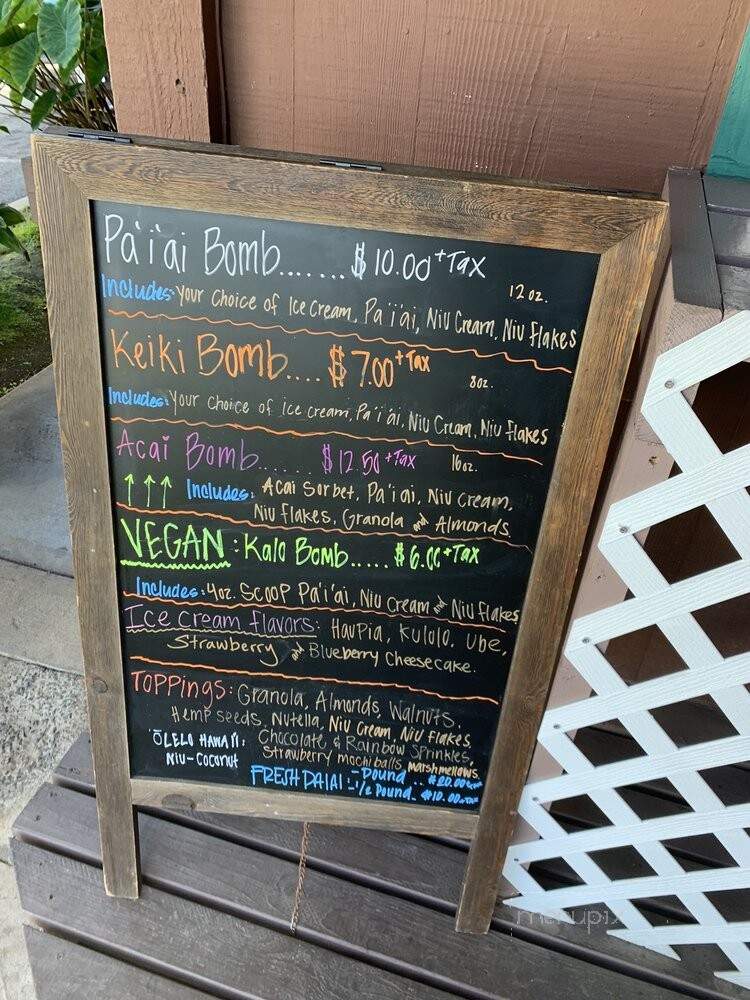 Pa'i'ai Bomb....... $10.00 +Tax
12 oz.
Includes: Your Choice of Ice Cream, Pa'i'ai, Niu Cream, Niu Flakes
Keiki Bomb.... $7.00 +Tax
8oz.
Includes: Your Choice of ice cream, Pa'i'ai, Niu Cream, Niu flakes
Acai Bomb....... $12.50 +Tax
16oz.
↑↑↑ Includes: Acai Sorbet, Pa'i'ai, Niu Cream,
Niu Flakes, Granola and Almonds.
VEGAN: Kalo Bomb..... $6.00 +Tax
Includes: 4oz. Scoop Pa'i'ai, Niu Cream and Niu flakes
Ice cream flavors: Haupia, Kulolo, Ube,
Strawberry and Blueberry Cheesecake.
Toppings: Granola, Almonds, Walnuts,
Hemp seeds, Nutella, Niu Cream, Niu flakes
Chocolate & Rainbow Sprinkles,
Strawberry mochi balls, marshmellows.
'ŌLELO HAWAI'I:
Niu-Coconut
FRESH PAIAI :- Pound .. $20.00 +tax
- 1/2 Pound.. $10.00 +tax
menupix